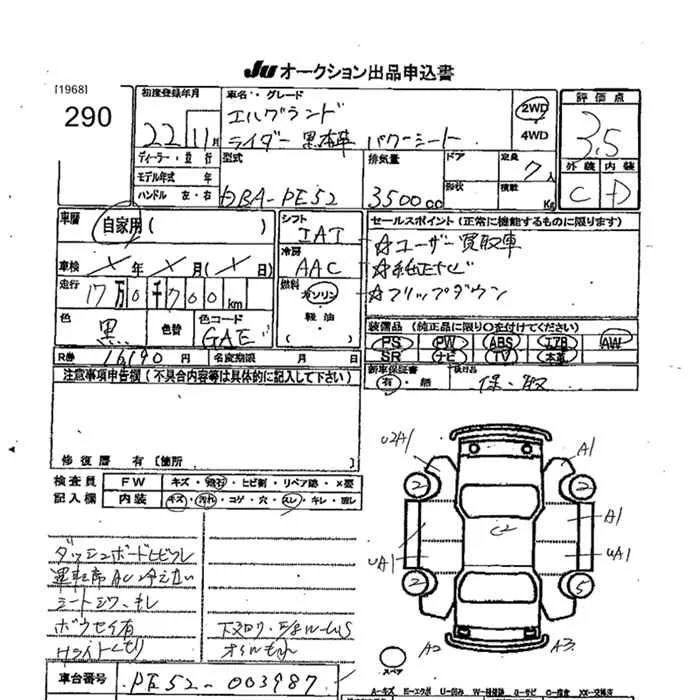 JU オークション出品申込書
[1968]
290
初度登録年月
22年11月
車名・グレード
エルグランド
ライダー 黒本革 パワーシート
2WD
・
4WD
評価点
3.5
外装 内装
C D
ディーラー・並行
モデル年式 年
ハンドル 左・右
型式
DBA-PE52
排気量
3500cc
ドア
形状
定員
7人
積載
Kg
車歴
自家用( )
車検 × 年 × 月(×日)
走行 17万0千700km
色
黒
色替
色コード
GAE
シフト
IAT
冷房
AAC
燃料
ガソリン
・
軽油
セールスポイント(正常に機能するものに限ります)
☆ユーザー買取車
☆純正ナビ
☆フリップダウン
装備品(純正品に限り○を付けてください)
PS PW ABS エアB AW
SR ナビ TV 本革
R券 16190円 名変期限 月 日
新車保証書
有・無
保・取
注意事項申告欄(不具合内容等は具体的に記入して下さい)
修復歴 有[箇所 ]
検査員
記入欄
FW キズ・飛石・ヒビ割・リペア跡・×要
内装 キズ・汚れ・コゲ・穴・スレ・キレ・
ダッシュボードヒビワレ
シートシワ、キレ
下マワリ
車台番号 PE52-003987
U2A1
A1
2
2
A1
C2
UA1
UA1
2
5
A2
A3
スペア